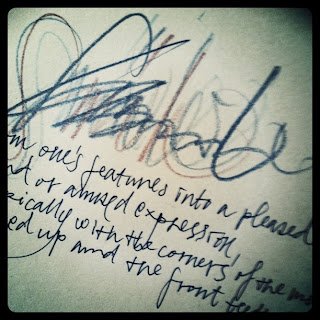 m one's features into a pleased
nd or amused expression,
pically with the corners of the mo
ed up and the front tee